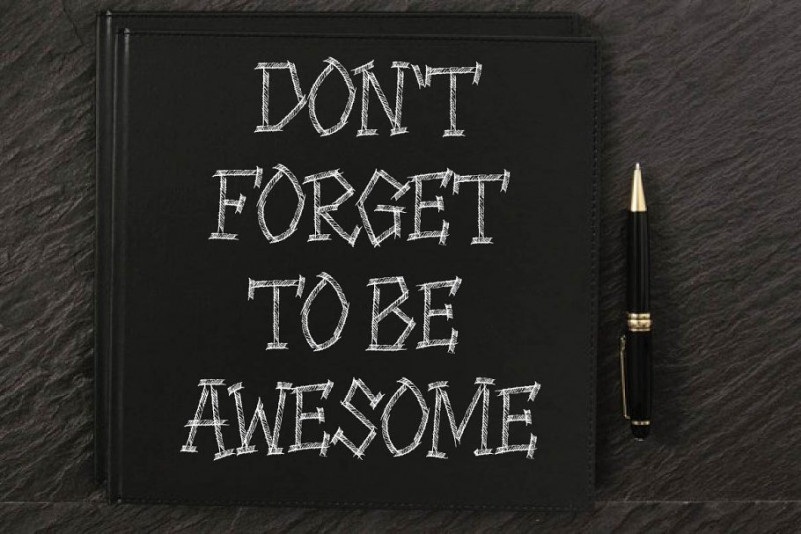 DON'T
FORGET
TO BE
AWESOME